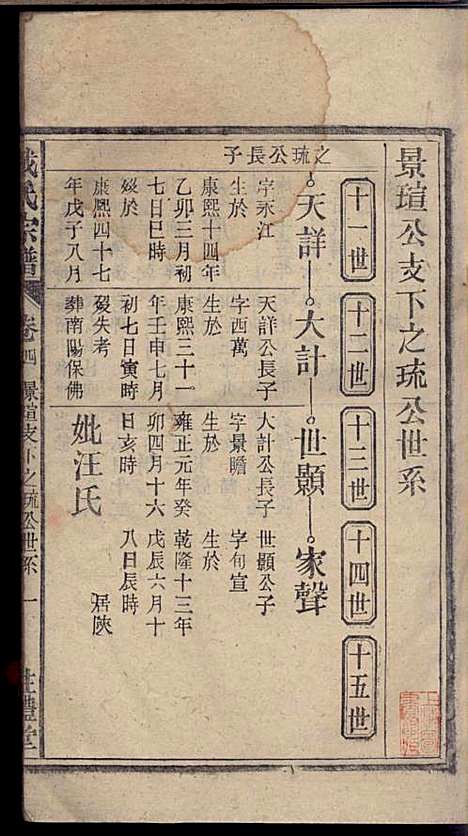 景瑄公支下之琉公世系
十一世 十二世 十三世 十四世 十五世
之琉公長子
天詳 大計 世顯 家聲
字永江
生於
康熙十四年
乙卯三月初
七日巳時
歿於
康熙四十七
年戊子八月
天詳公長子
字西萬
生於
康熙三十一
年壬申七月
初七日寅時
歿失考
葬南陽保佛
大計公長子
字景瞻
生於
雍正元年癸
卯四月十六
日亥時
妣汪氏
世顯公子
字旬宣
生於
乾隆十三年
戊辰六月十
八日辰時
居陝
氏宗譜 卷四 景瑄支下之琉公世系 一 禮堂